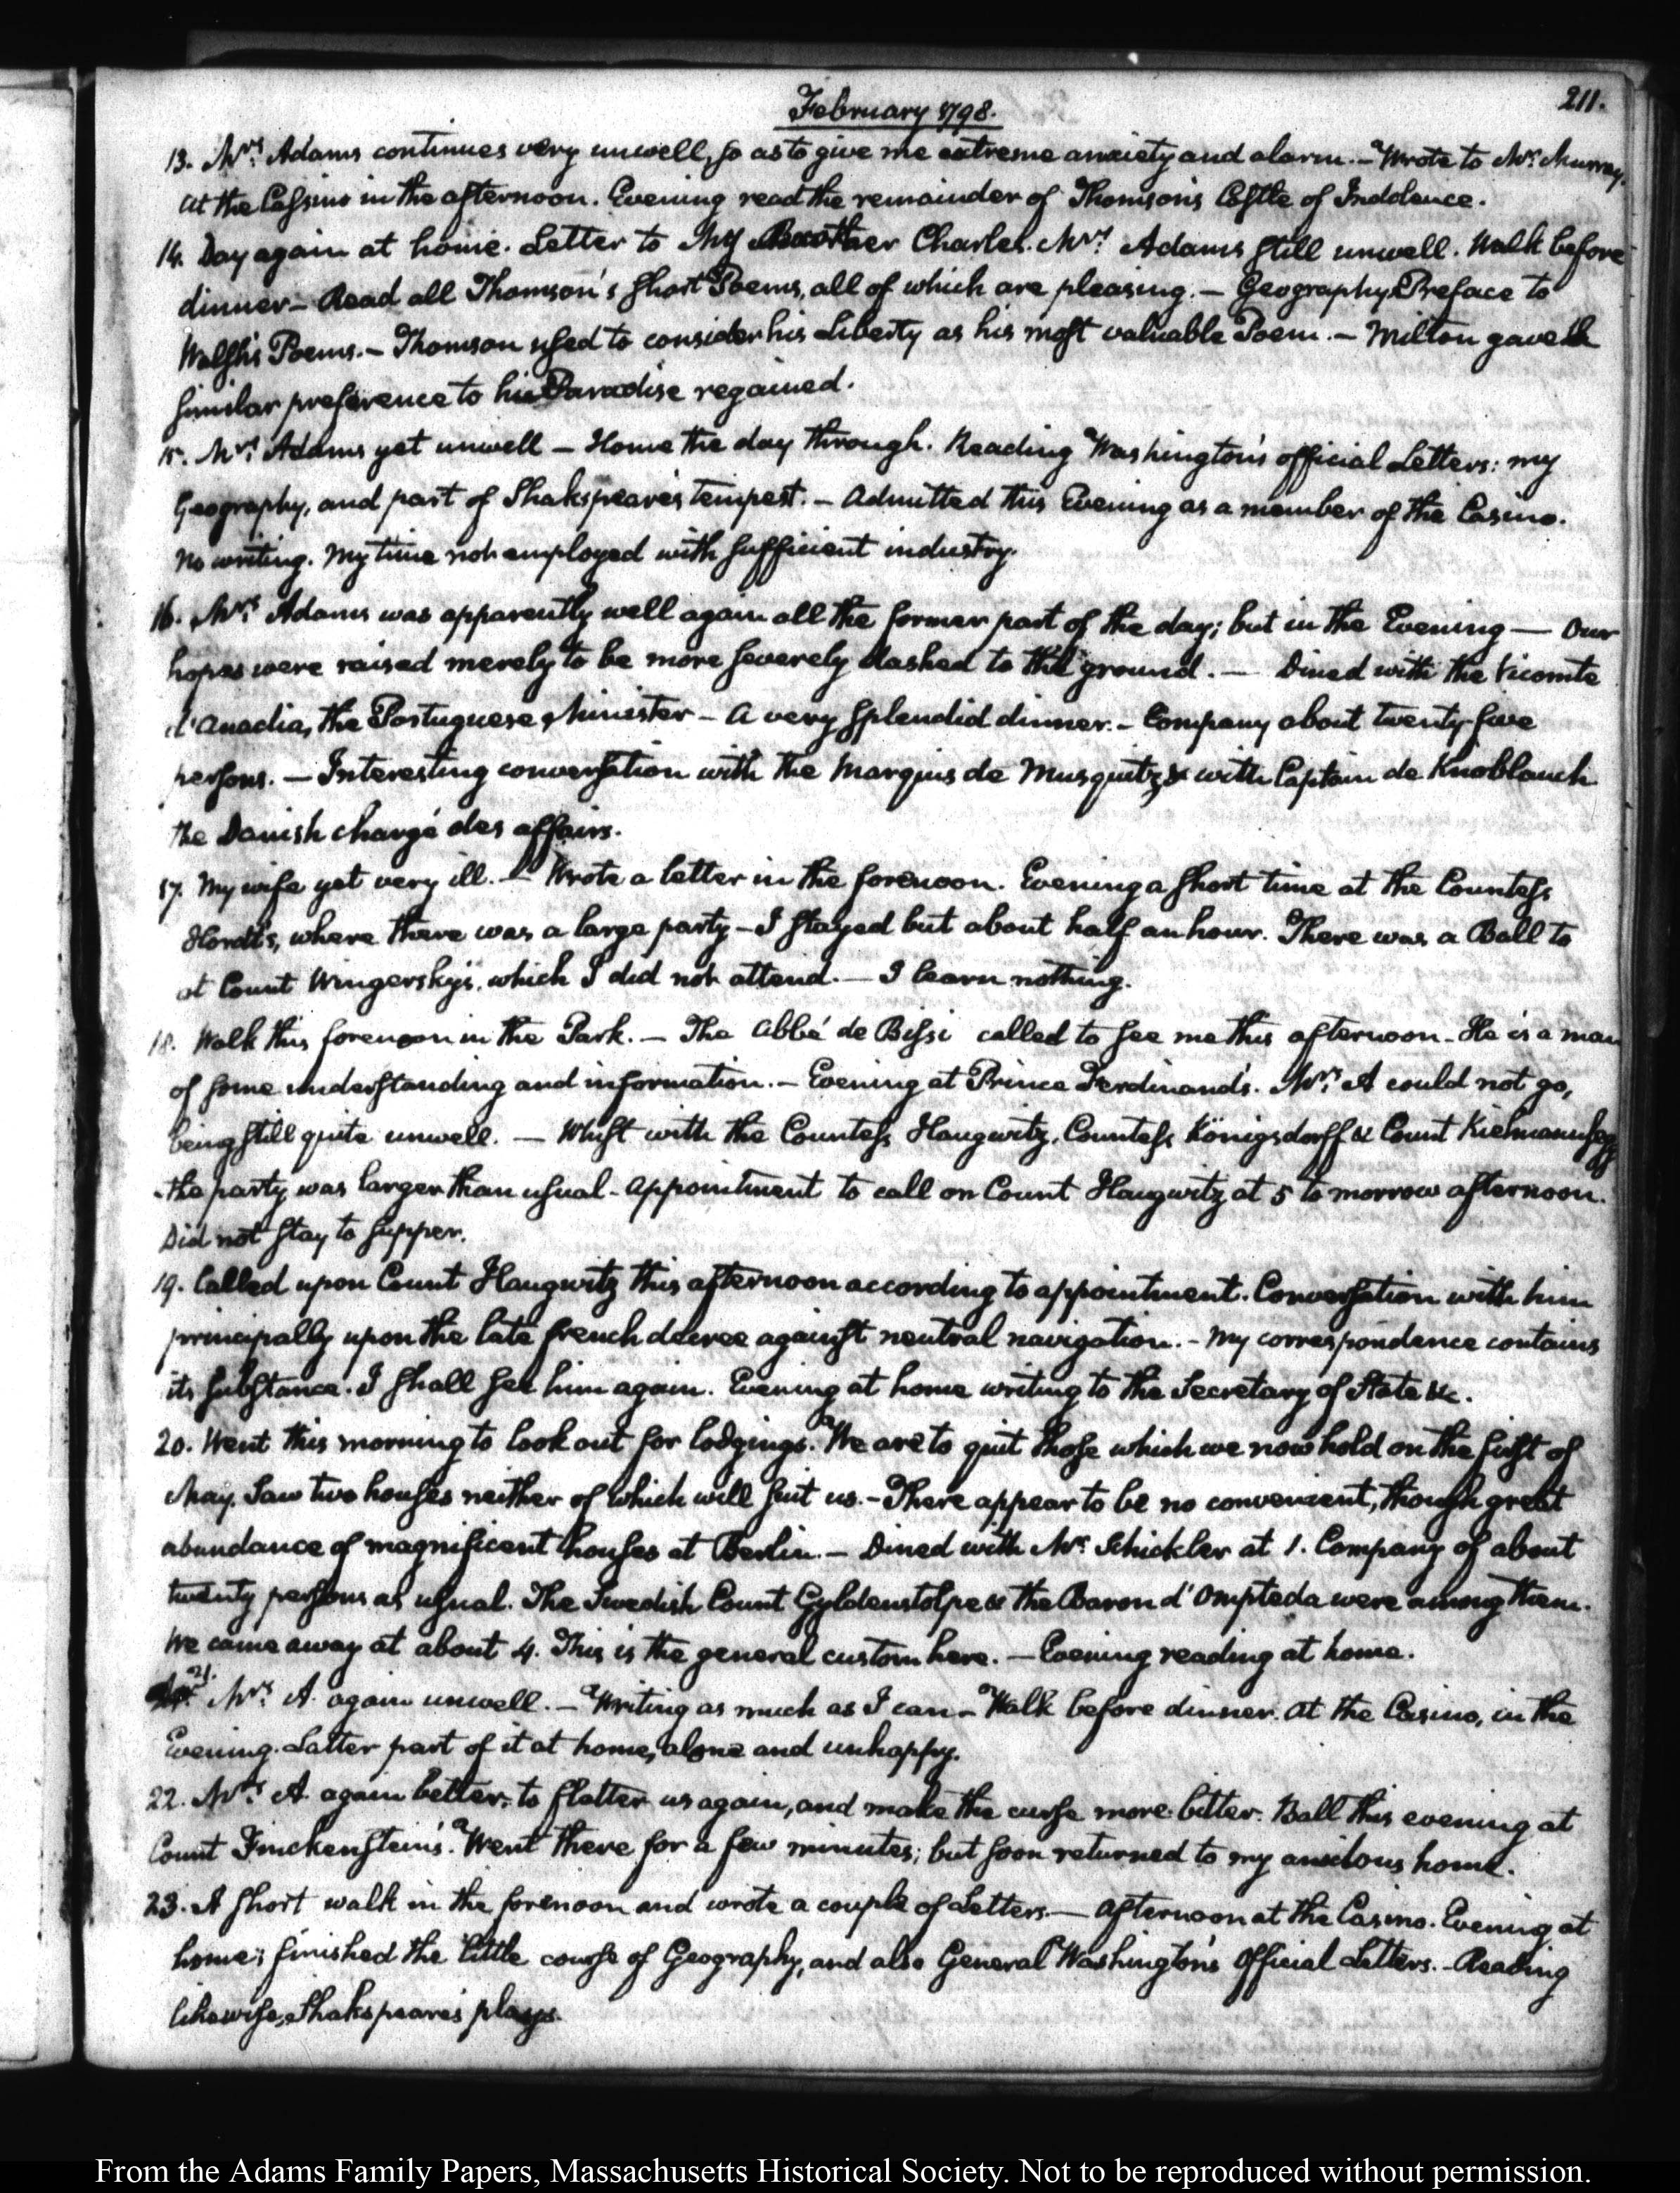 February 1798.
211.
13. Mrs. Adams continues very unwell, so as to give me extreme anxiety and alarm. — Wrote to Mr. Murray.
At the Cassino in the afternoon. Evening read the remainder of Thomson's Castle of Indolence.
14. Day again at home. Letter to My Brother Charles. Mrs. Adams still unwell. Walk before
dinner — Read all Thomson's short Poems, all of which are pleasing. — Geography. Preface to
Walsh's Poems. — Thomson used to consider his Liberty as his most valuable Poem. — Milton gave the
similar preference to his Paradise regained.
15. Mrs. Adams yet unwell — Home the day through. Reading Washington's official Letters: my
Geography, and part of Shakspeare's tempest. — Admitted this Evening as a member of the Casino.
No writing. My time not employed with sufficient industry.
16. Mrs. Adams was apparently well again all the former part of the day; but in the Evening — Our
hopes were raised merely to be more severely dashed to the ground. — Dined with the Vicomte
d'Anadia, the Portuguese Minister — A very splendid dinner. — Company about twenty-five
persons. — Interesting conversation with the Marquis de Musquitz, & with Captain de Knoblauch
the Danish chargé des affairs.
17. My wife yet very ill. — Wrote a letter in the forenoon. Evening a short time at the Countess
Hordt's, where there was a large party — I stayed but about half an hour. There was a Ball to
at Count Wingersky's, which I did not attend. — I learn nothing.
18. Walk this forenoon in the Park. — The Abbé de Bissi called to see me this afternoon — He is a man
of some understanding and information. — Evening at Prince Ferdinand's. Mrs. A could not go,
being still quite unwell. — Whist with the Countess Haugwitz, Countess Königsdorff & Count Kielmansegg
the party was larger than usual — Appointment to call on Count Haugwitz at 5 to morrow afternoon.
Did not stay to supper.
19. Called upon Count Haugwitz this afternoon according to appointment. Conversation with him
principally upon the late french decree against neutral navigation. — My correspondence contains
its substance. I shall see him again. Evening at home writing to the Secretary of State &c.
20. Went this morning to look out for lodgings. We are to quit those which we now hold on the first of
May. Saw two houses neither of which will suit us. — There appear to be no convenient, though great
abundance of magnificent houses at Berlin. — Dined with Mr. Schickler at 1. Company of about
twenty persons as usual. The Swedish Count Gyldenstolpe & the Baron d'Ompteda were among them.
We came away at about 4. This is the general custom here. — Evening reading at home.
21. Mrs. A. again unwell. — Writing as much as I can — Walk before dinner. At the Casino, in the
Evening. Latter part of it at home, alone and unhappy.
22. Mrs. A. again better, to flatter us again, and make the curse more bitter. Ball this evening at
Count Finckenstein's. Went there for a few minutes; but soon returned to my anxious home.
23. A short walk in the forenoon and wrote a couple of Letters. — Afternoon at the Casino. Evening at
home; finished the little course of Geography, and also General Washington's Official Letters. — Reading
likewise, Shakspeare's plays.
From the Adams Family Papers, Massachusetts Historical Society. Not to be reproduced without permission.